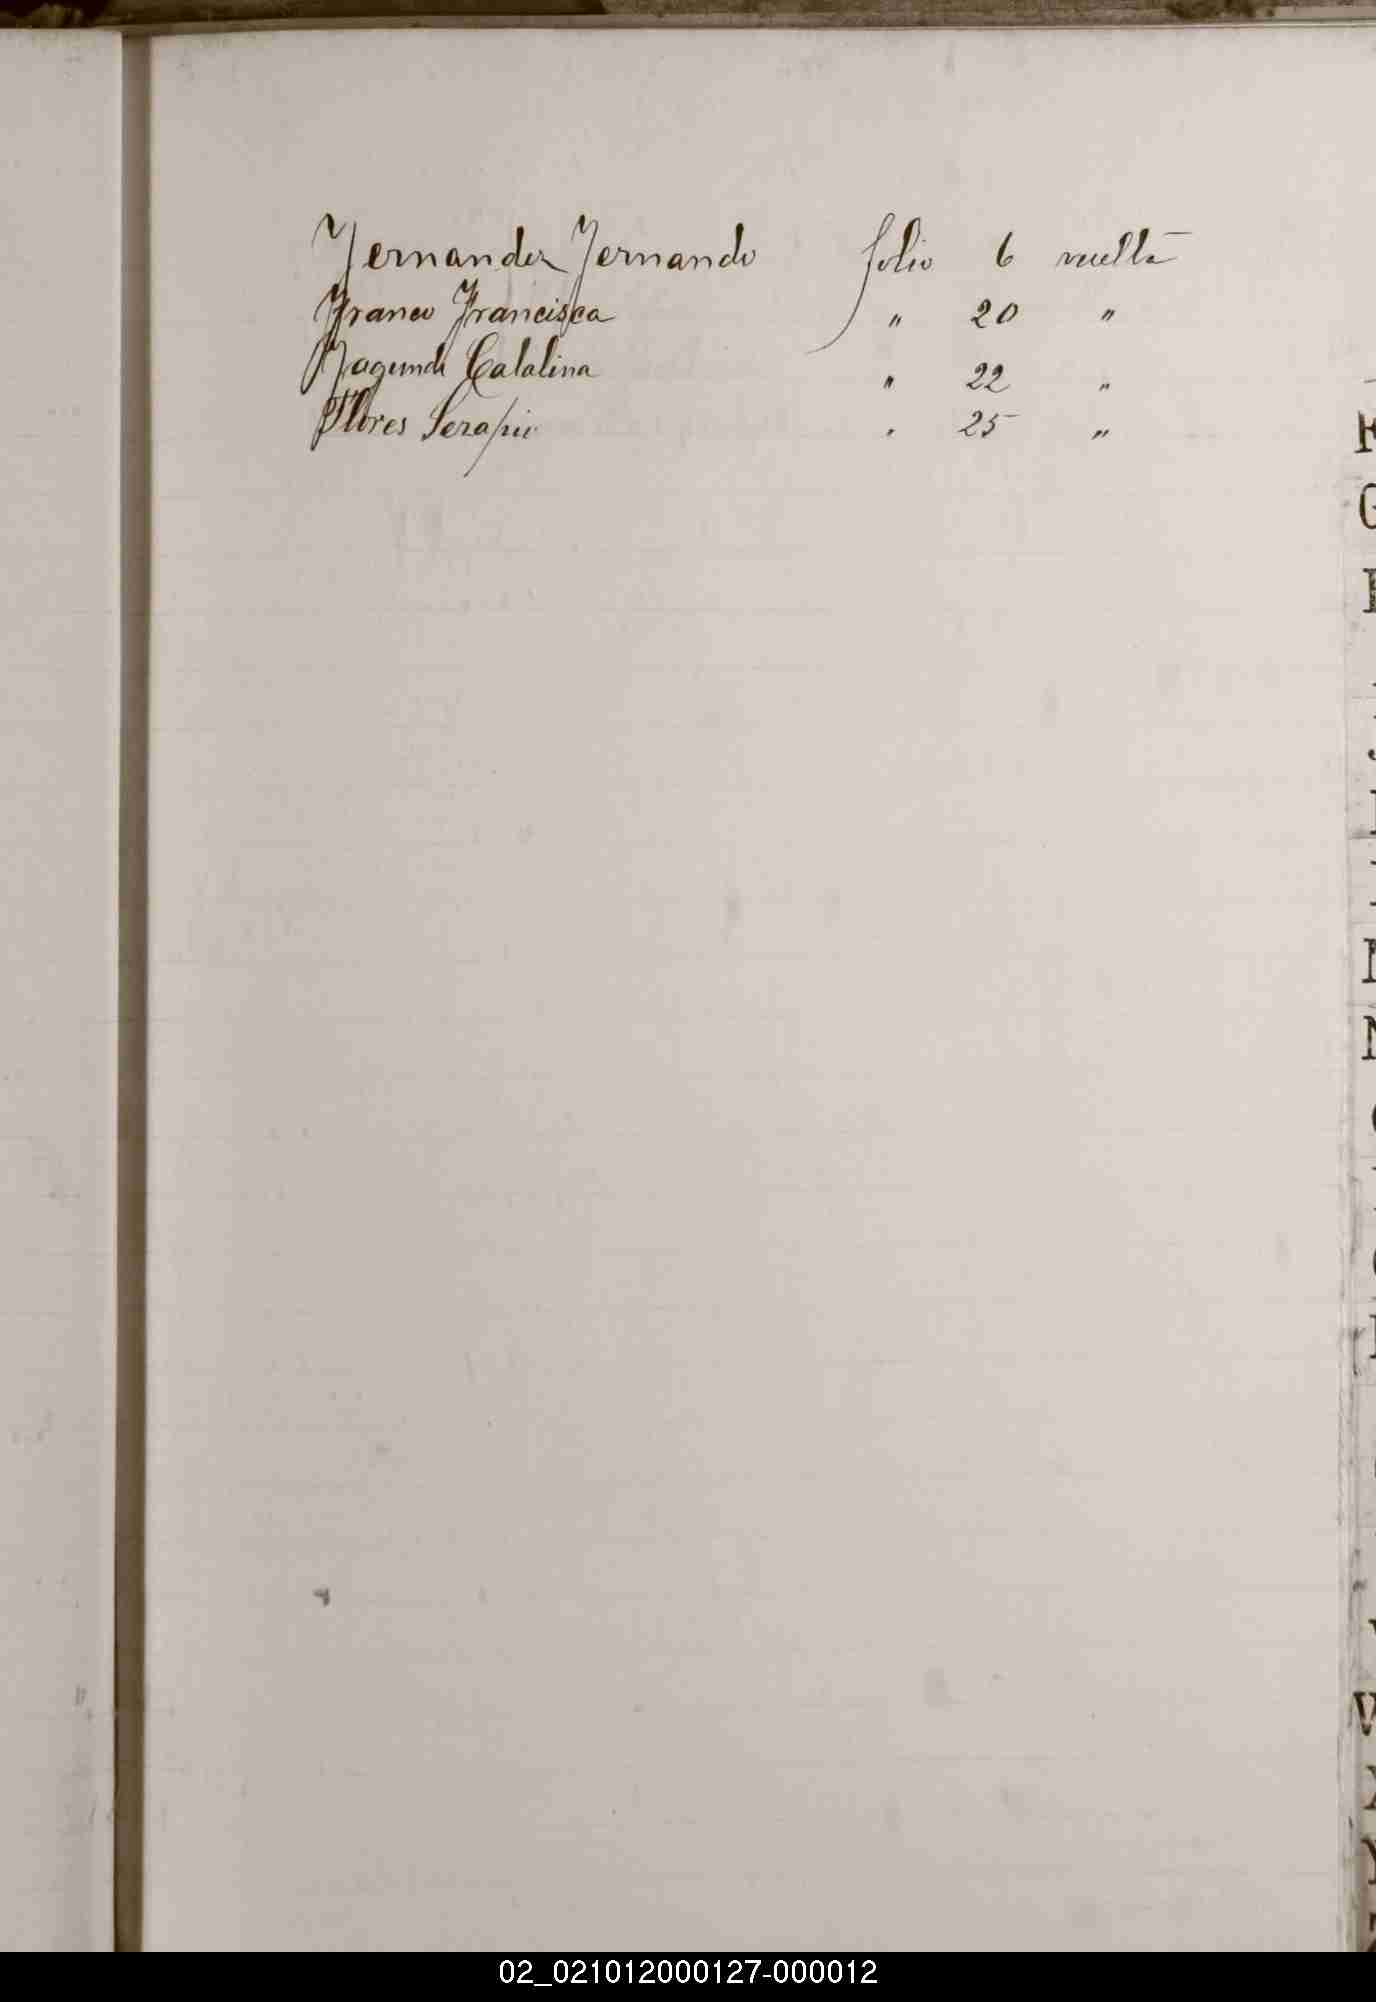 Fernandez Fernando folio 6 vuelta
Franco Francisca " 20 "
Fagunde Catalina " 22 "
Flores Serapio " 25 "
F
G
02_021012000127-000012